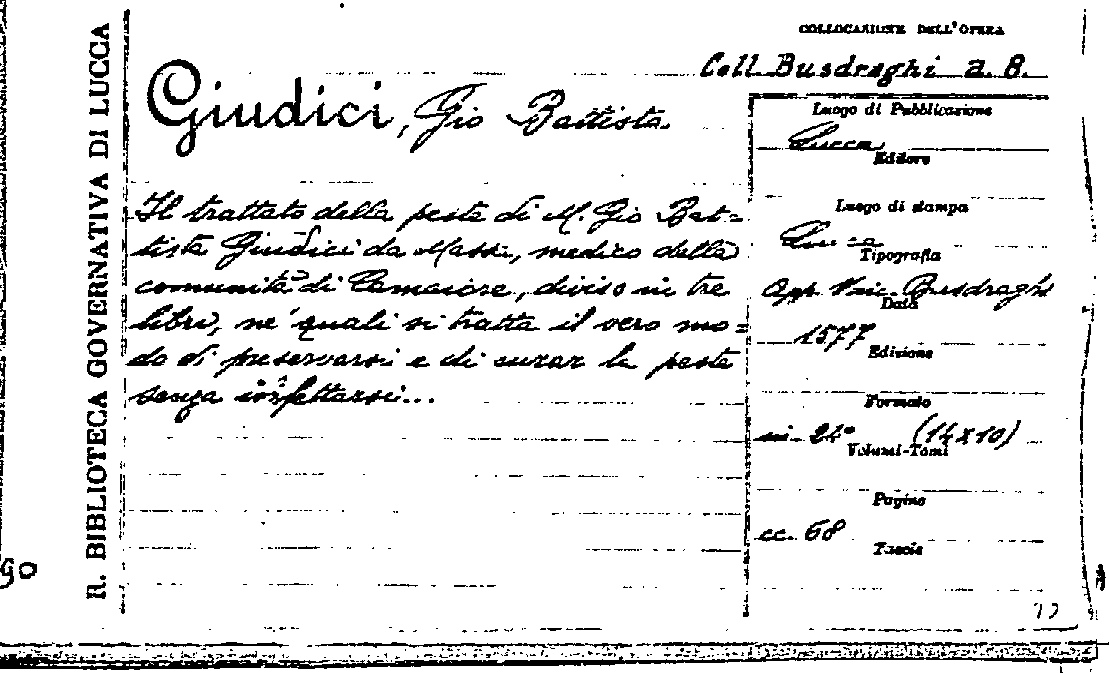 R. BIBLIOTECA GOVERNATIVA DI LUCCA
COLLOCAZIONE DELL'OPERA
Coll. Busdraghi a. 8.
Giudici, Gio Battista
Il trattato della peste di M. Gio Bat=
tista Giudici da Massa, medico della
comunità di Camaiore, diviso in tre
libri, ne' quali si tratta il vero mo=
do di preservarsi e di curar la peste
senza infettarsi...
Luogo di Pubblicazione
Lucca
Editore
Luogo di stampa
Lucca
Tipografia
App. Vinc. Busdraghi
Data
1577
Edizione
Formato
in 24° (14x10)
Volumi-Tomi
Pagine
cc. 68
Tavole
90